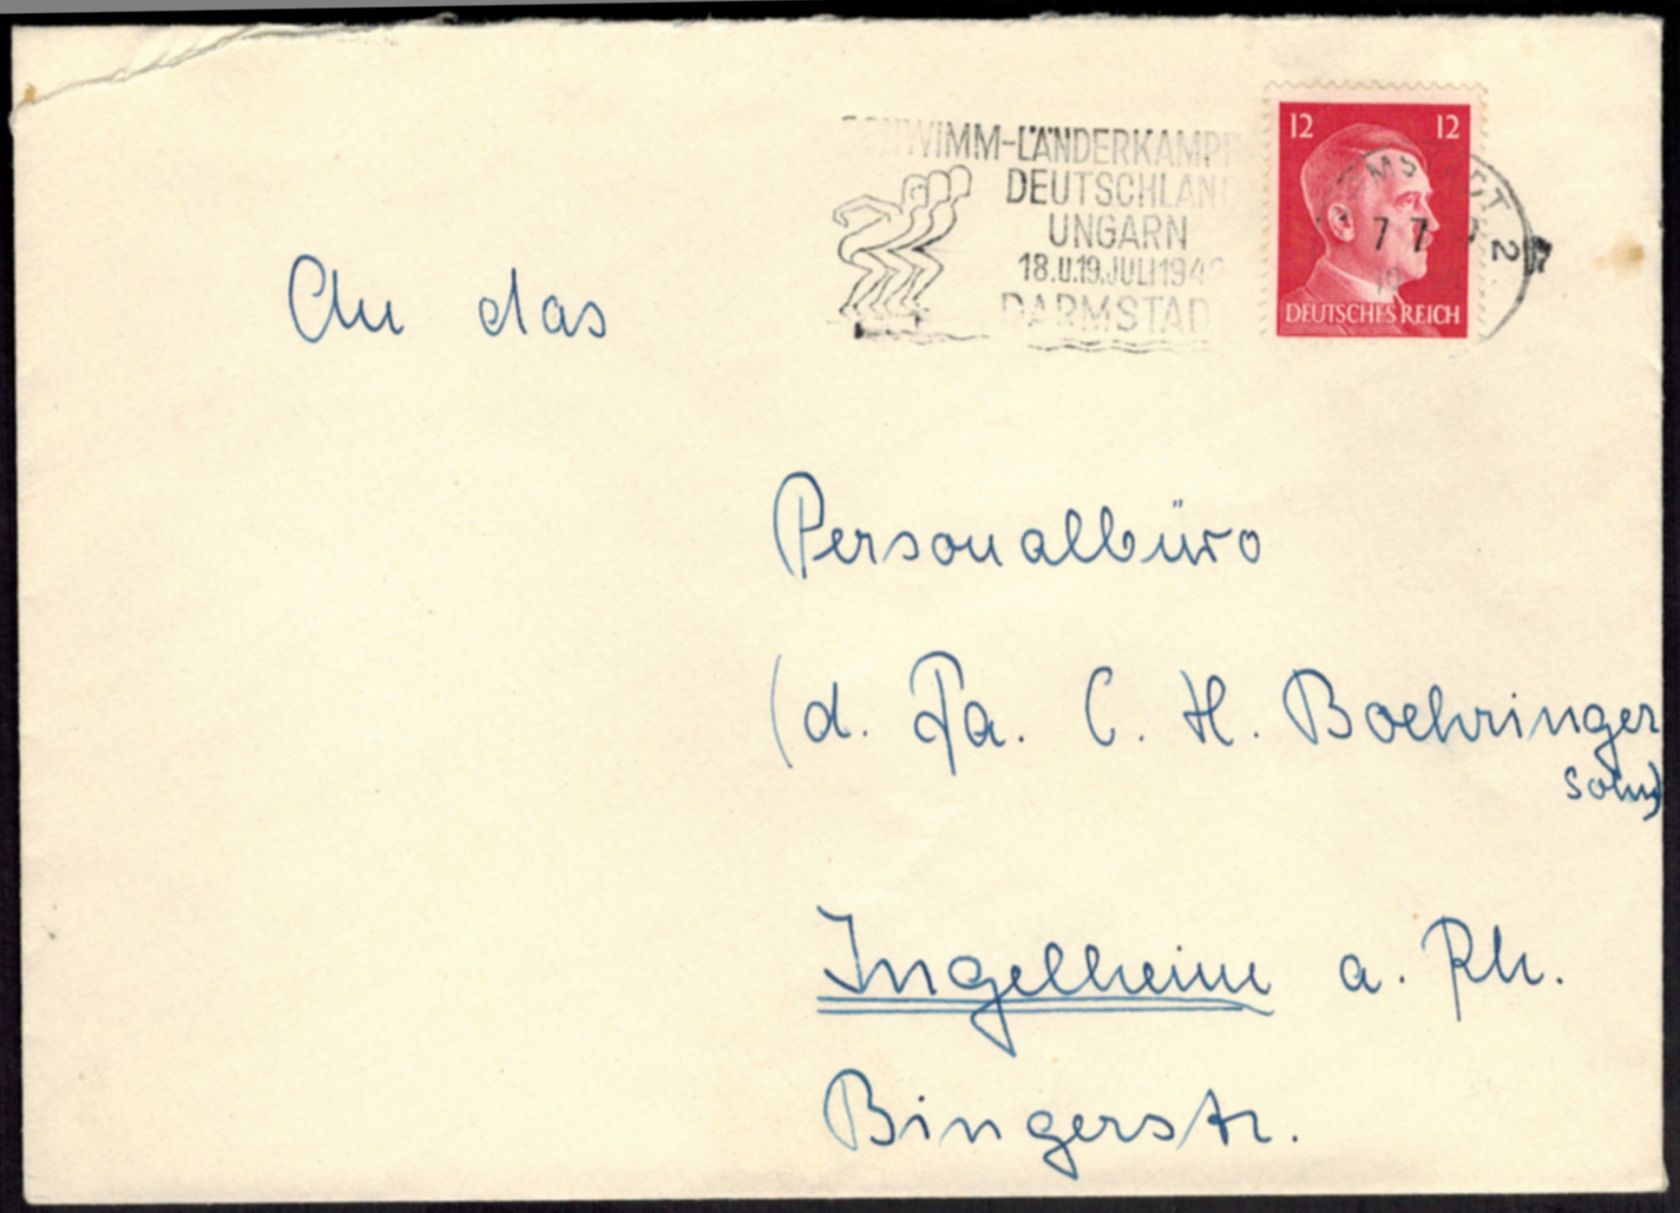 SCHWIMM-LÄNDERKAMPF
DEUTSCHLAND
UNGARN
18.U.19.JULI 194
DARMSTADT
12 12
DEUTSCHES REICH
7 7
2
An das
Personalbüro
(d. Fa. C. H. Boehringer
Sohn)
Ingelheim a. Rh.
Bingerstr.